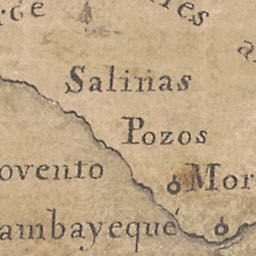 Salinas
Pozos
ovento
Mor
ambayeque